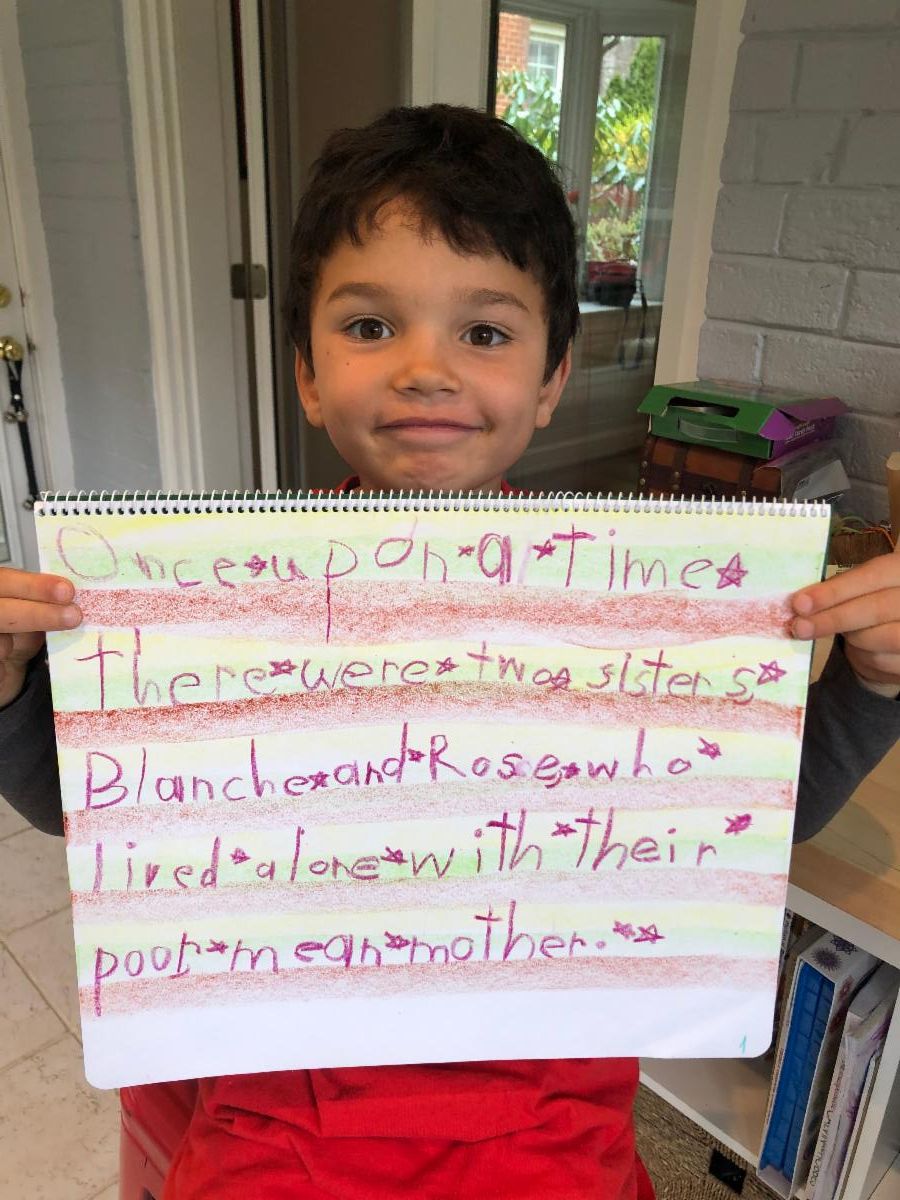 Once★upon★a★Time★
There★were★two★sisters,★
Blanche★and★Rose,★who★
lived★alone★with★their★
poor★mean★mother.★★
1